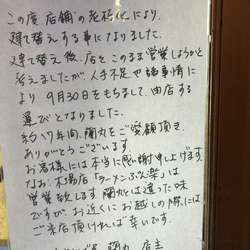 この度 店舗の老朽化により、
建て替えする事になりました。
建て替え後、店をこのまま営業しようかと
考えましたが、人手不足や諸事情に
より 9月30日をもちまして、閉店する
運びとなりました。
約17年間、蘭丸をご愛顧頂き、
ありがとうございます。
お客様には本当に感謝申し上げます。
なお、木場店「ラーメン ぶん楽」は
営業致します。蘭丸とは違った味
ですが、お近くにお越しの際には
ご来店頂ければ幸いです。
蘭丸 店主